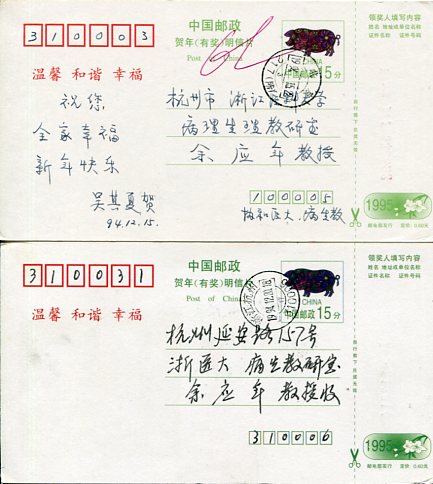 310003
中国邮政
贺年(有奖)明信片
Post of China
CHINA
中国邮政 15分
温馨 和谐 幸福
祝您
全家幸福
新年快乐
吴其夏贺
94.12.15.
杭州市 浙江 大学
病理生理教研室
余应年教授
100005
协和医大、病生教
领奖人填写内容
姓名 地址或单位名称
证件名称 证件号码
自行剪下兑奖无效
1995
邮电部发行 定价:0.60元
310031
中国邮政
贺年(有奖)明信片
Post of China
CHINA
中国邮政 15分
温馨 和谐 幸福
杭州延安路157号
浙医大 病生教研室
余应年 教授收
310006
领奖人填写内容
姓名 地址或单位名称
证件名称 证件号码
自行剪下兑奖无效
1995
邮电部发行 定价:0.60元